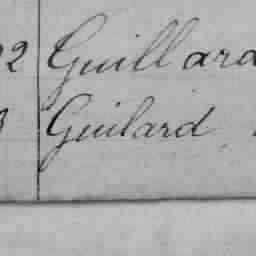 2 Guillard
Guilard